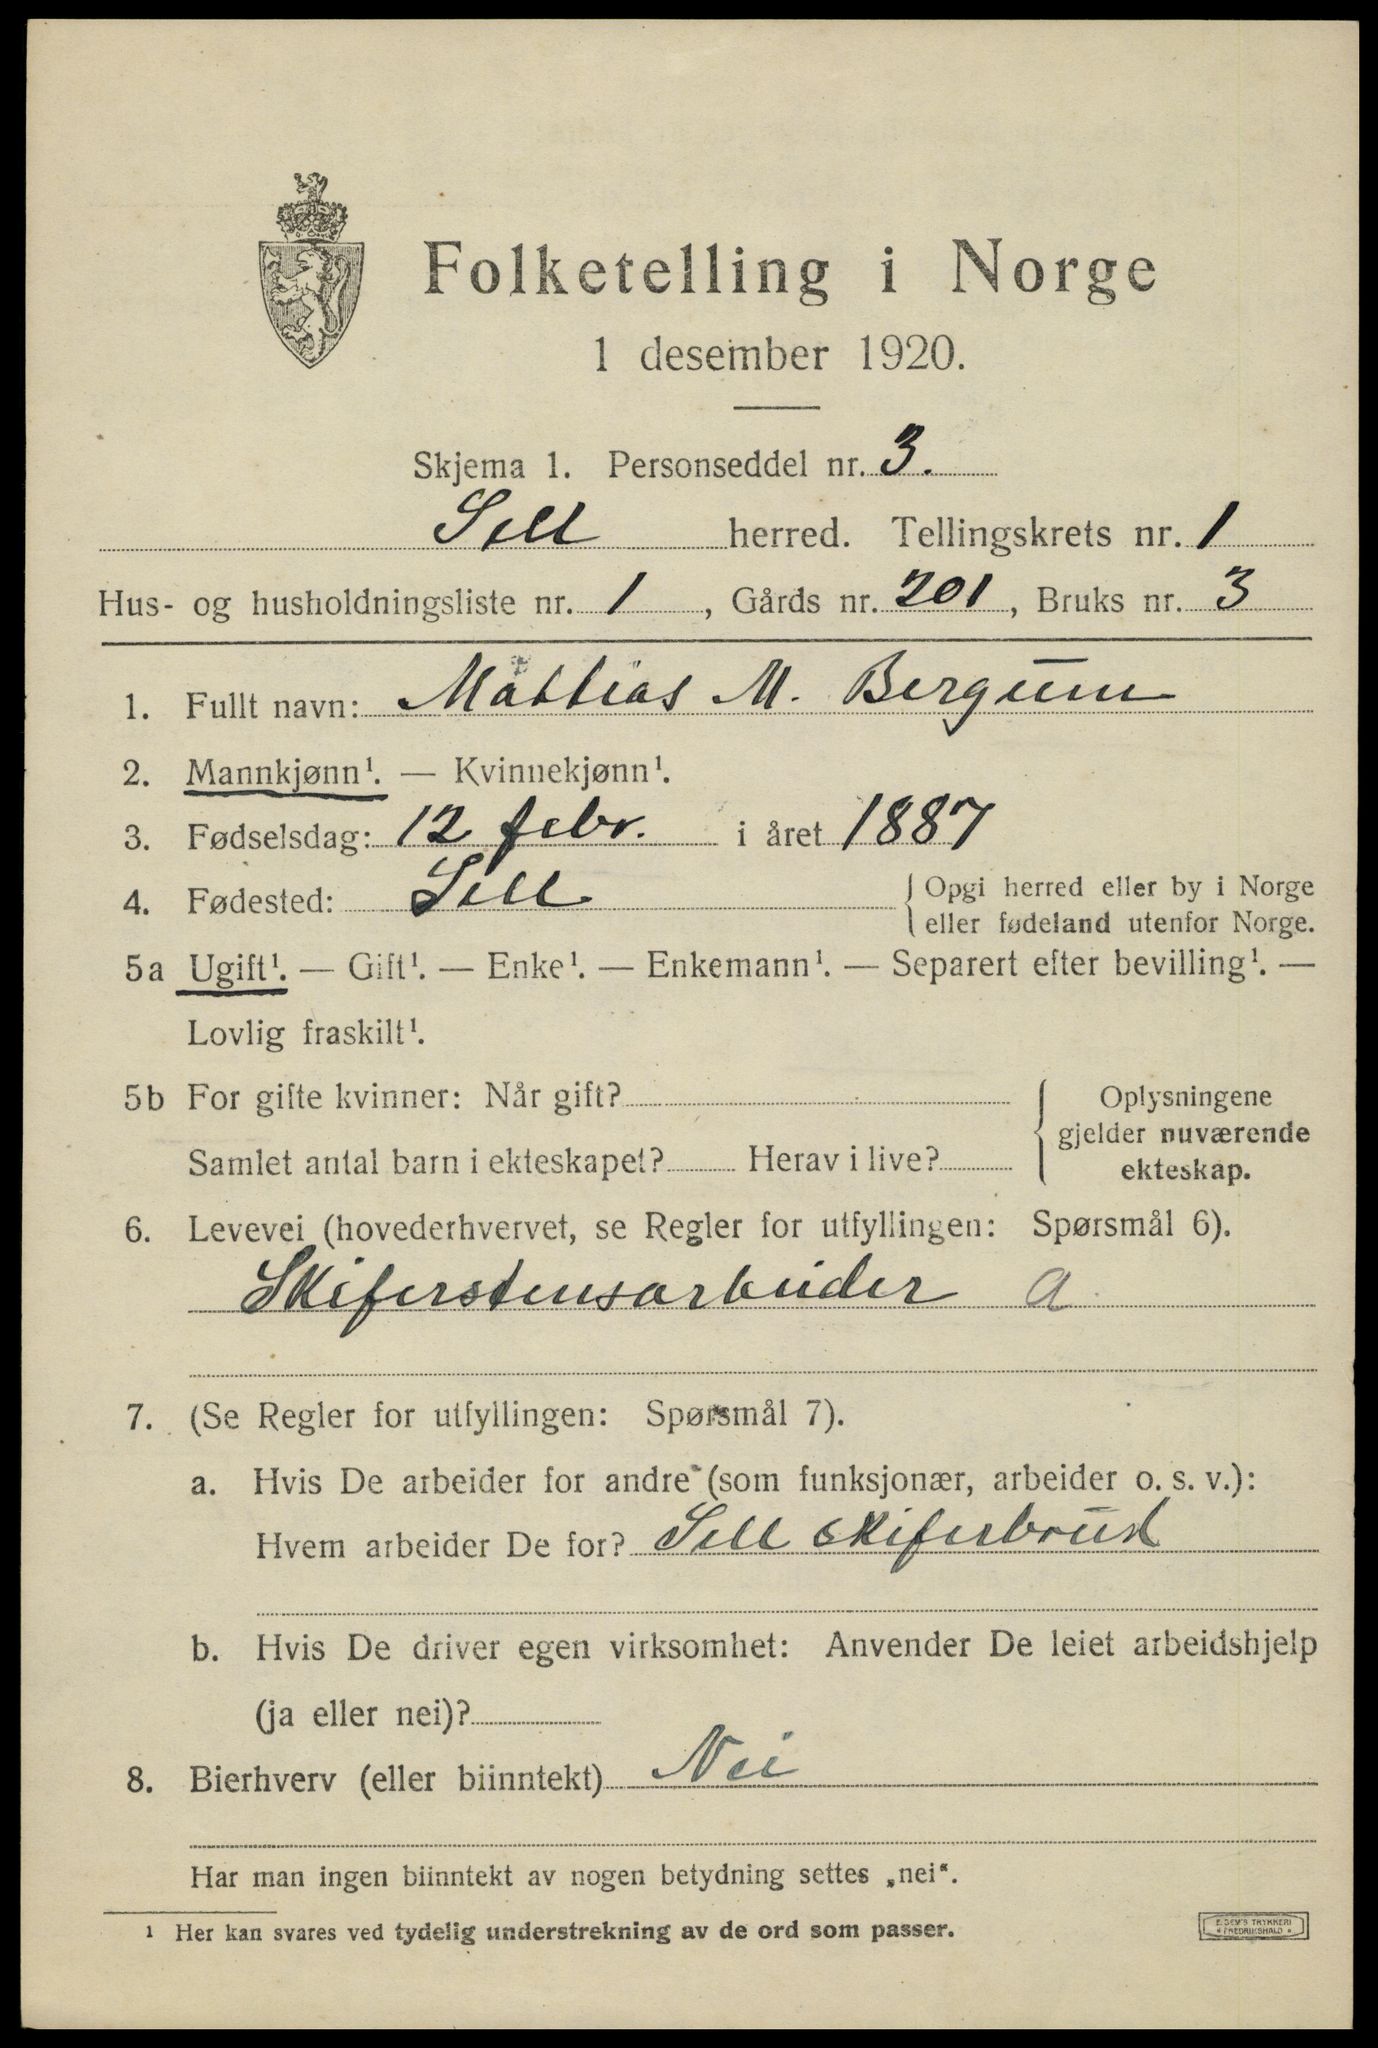 Folketelling i Norge
1 desember 1920.
Skjema 1. Personseddel nr. 3.
Sell herred. Tellingskrets nr. 1
Hus- og husholdningsliste nr. 1, Gårds nr. 201, Bruks nr. 3
1. Fullt navn: Mattias M. Bergum
2. Mannkjønn¹. — Kvinnekjønn¹.
3. Fødselsdag: 12 febr. i året 1887
4. Fødested: Sell { Opgi herred eller by i Norge
eller fødeland utenfor Norge.
5a Ugift¹. — Gift¹. — Enke¹. — Enkemann¹. — Separert efter bevilling¹. —
Lovlig fraskilt¹.
5b For gifte kvinner: Når gift? { Oplysningene
gjelder nuværende
Samlet antal barn i ekteskapet? Herav i live? ekteskap.
6. Levevei (hovederhvervet, se Regler for utfyllingen: Spørsmål 6).
Skiferstensarbeider a
7. (Se Regler for utfyllingen: Spørsmål 7).
a. Hvis De arbeider for andre (som funksjonær, arbeider o. s. v.):
Hvem arbeider De for? Sell skiferbrud
b. Hvis De driver egen virksomhet: Anvender De leiet arbeidshjelp
(ja eller nei)?
8. Bierhverv (eller biinntekt) Nei
Har man ingen biinntekt av nogen betydning settes „nei“.
¹ Her kan svares ved tydelig understrekning av de ord som passer.
E. SEM'S TRYKKERI
* FREDRIKSHALD *